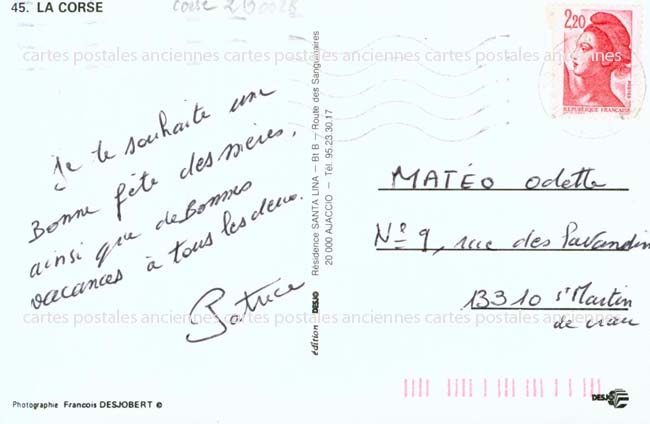 45. LA CORSE
corse
2,20
REPUBLIQUE FRANÇAISE
cartes postales anciennes cartes postales anciennes cartes postales anciennes
Je te souhaite une
Bonne fête des mères,
ainsi que de Bonnes
vacances à tous les deux.
Patrice
édition DESJO Résidence SANTA LINA – Bt B – Route des Sanguinaires
20 000 AJACCIO – Tél. 95.23.30.17
MATÉO Odette
N° 9, rue des Lavandin
13310 St Martin
de crau
cartes postales anciennes cartes postales anciennes cartes postales anciennes
Photographie Francois DESJOBERT ©
DESJO